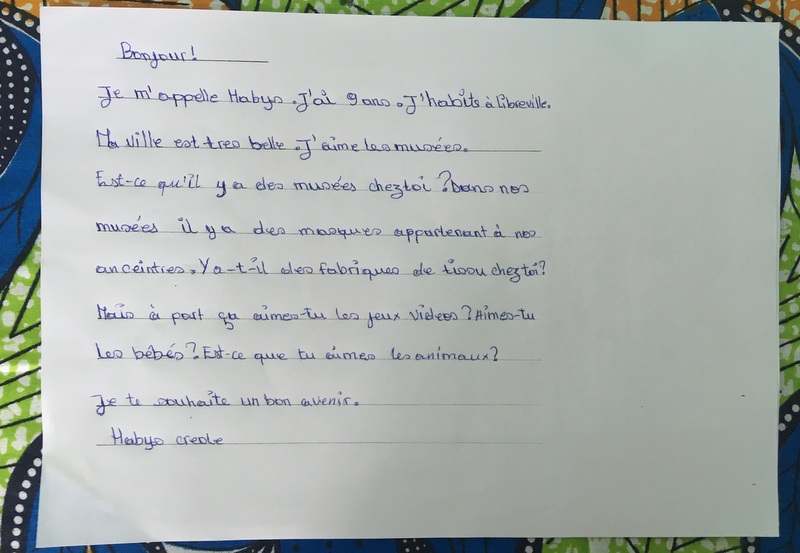 Bonjour!
Je m'appelle Habys. J'ai 9 ans. J'habits à Libreville.
Ma ville est tres belle. J'aime les musées.
Est-ce qu'il y a des musées chez toi ? Dans nos
musées il y a des masques appartenant à nos
anceintres. Ya-t-il des fabriques de tissu chez toi?
Mais à part ça aimes-tu les jeux videos ? Aimes-tu
les bébés? Est-ce que tu aimes les animaux?
Je te souhaite un bon avenir.
Habys creole